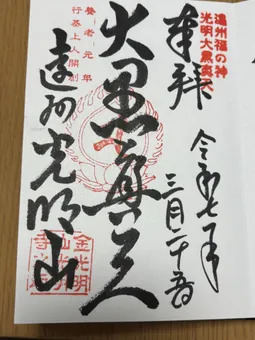 奉拝
遠州福の神
光明大黒真天
令和七年
三月二十五日
大黒真天
養老元年
行基上人開創
遠州光明山
金光明
山光明
寺